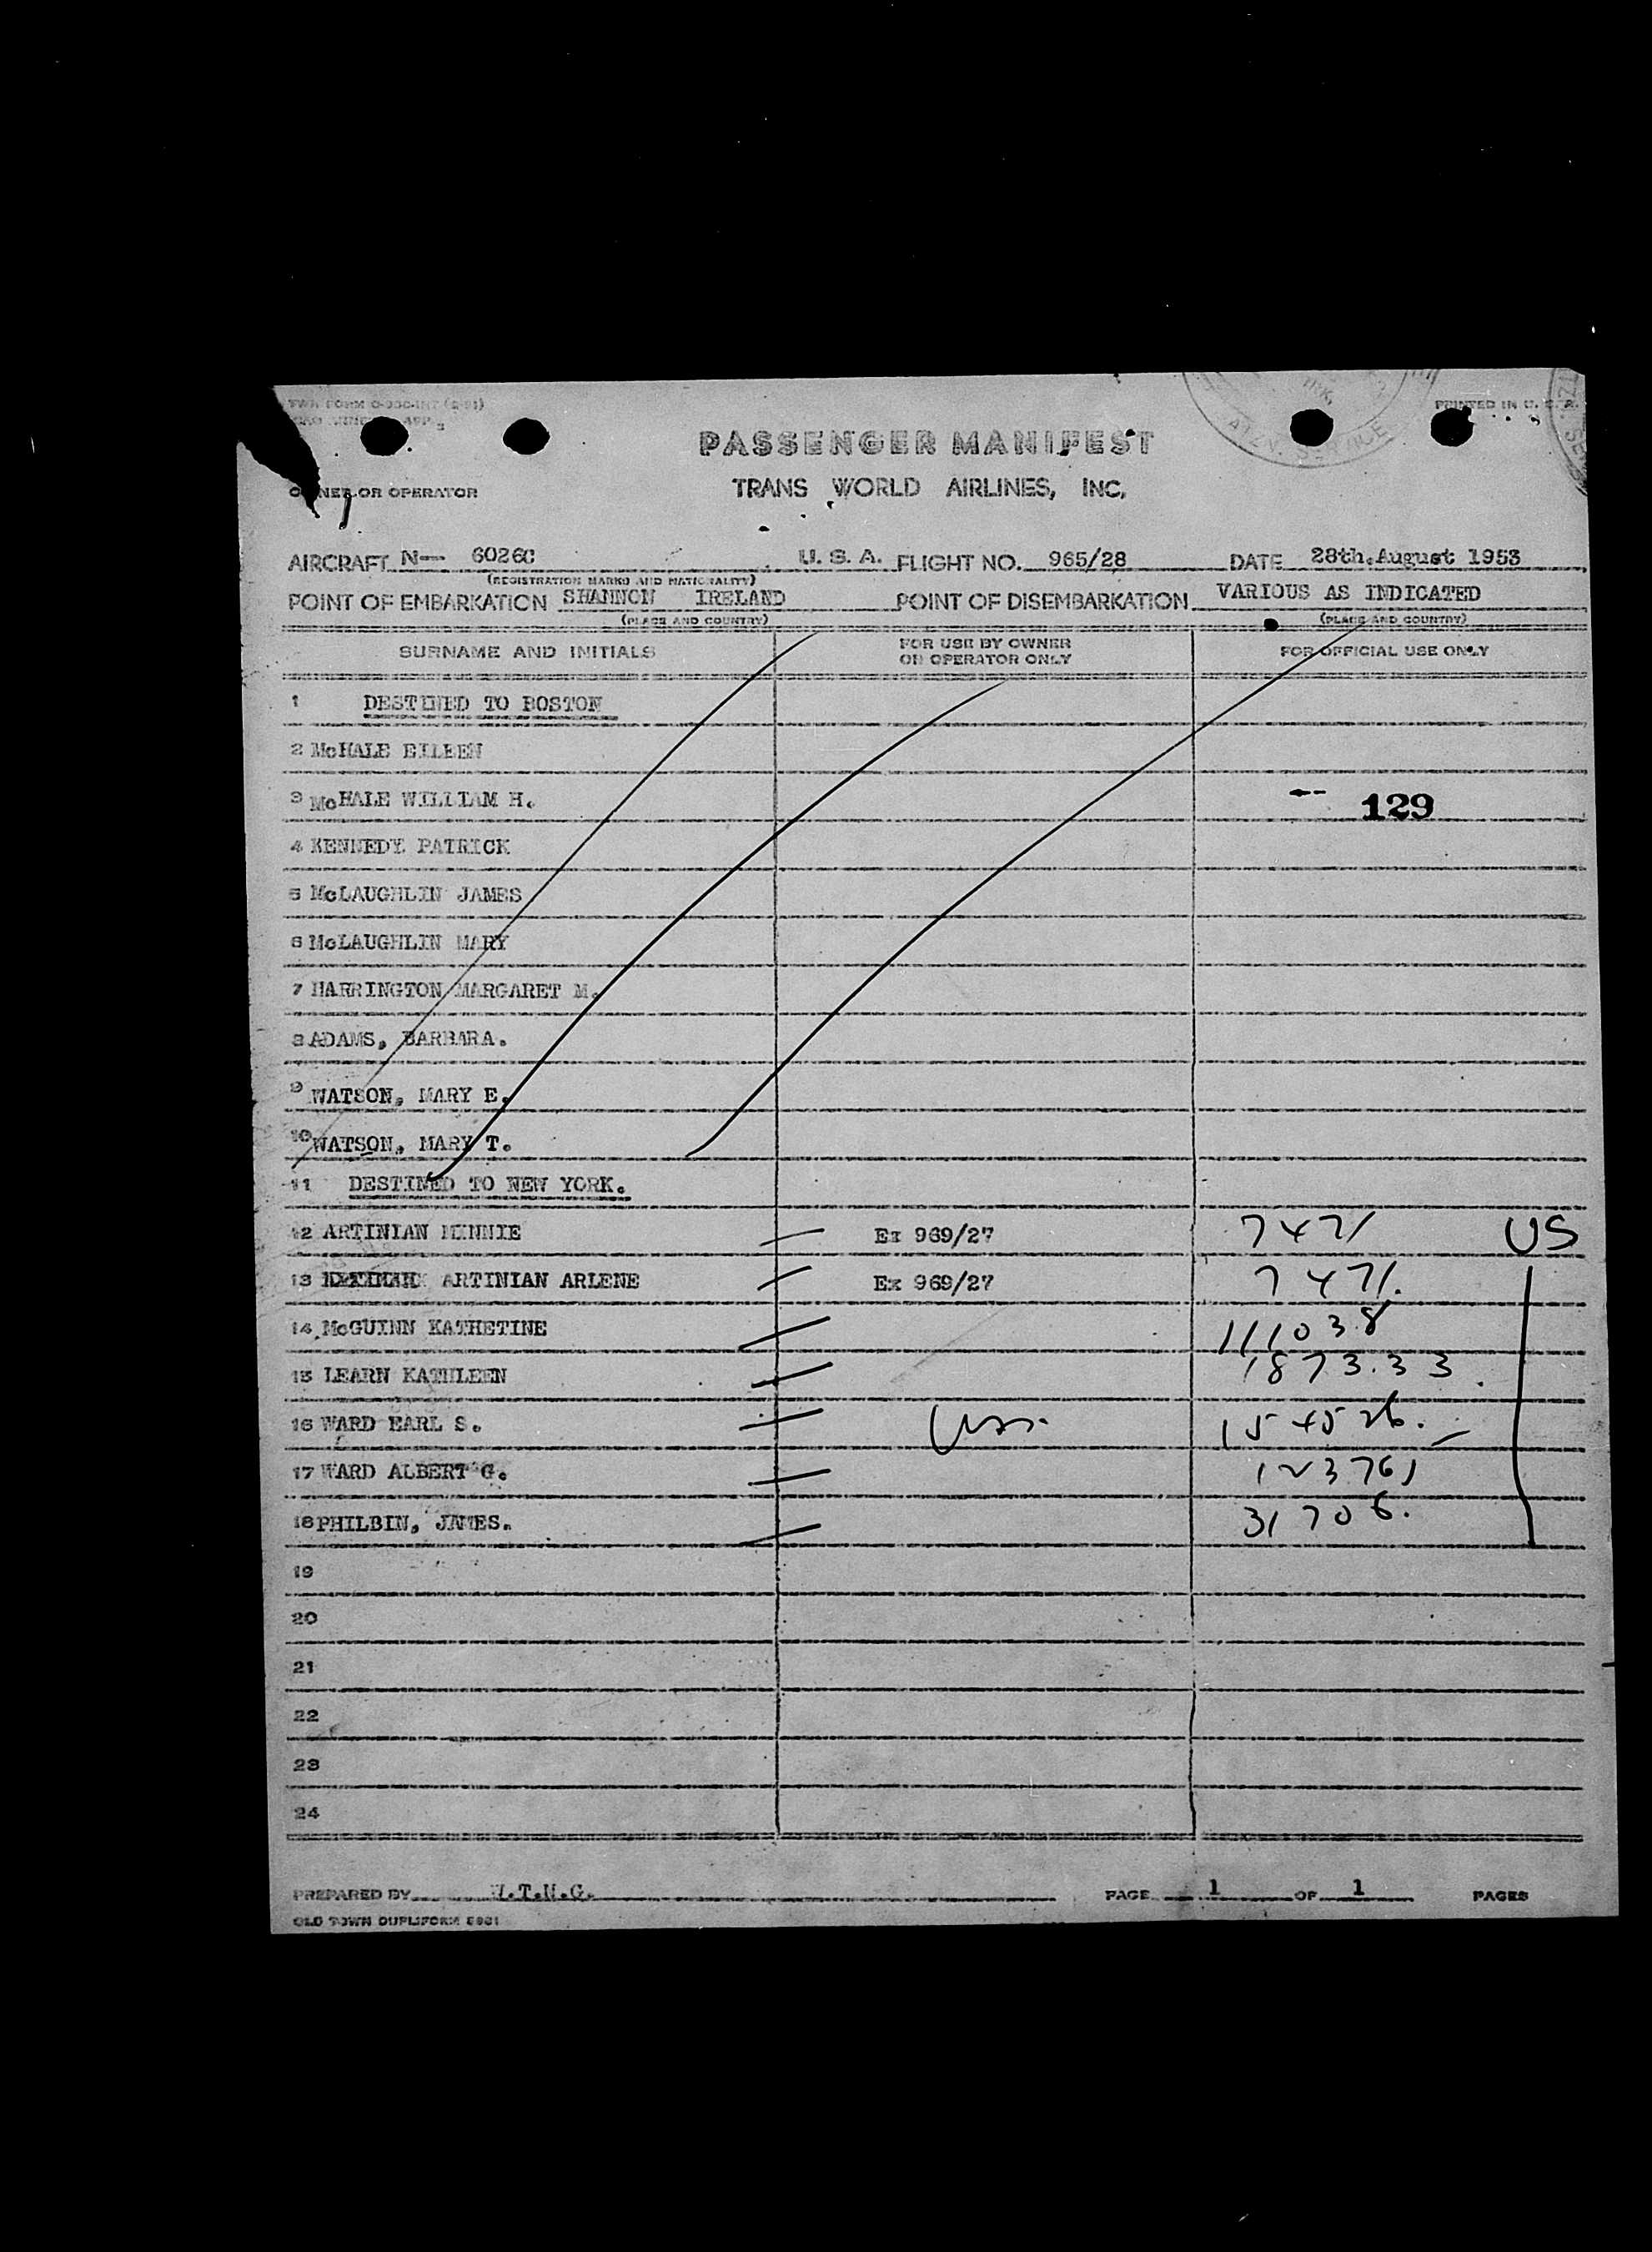 PRINTED IN U. S. A.
PASSENGER MANIFEST
OWNER OR OPERATOR
TRANS WORLD AIRLINES, INC.
AIRCRAFT N— 6026C U. S. A. FLIGHT NO. 965/28 DATE 28th.August 1953
(REGISTRATION MARKS AND NATIONALITY)
POINT OF EMBARKATION SHANNON IRELAND POINT OF DISEMBARKATION VARIOUS AS INDICATED
(PLACE AND COUNTRY) (PLACE AND COUNTRY)
SURNAME AND INITIALS FOR USE BY OWNER OR OPERATOR ONLY FOR OFFICIAL USE ONLY
1 DESTINED TO BOSTON
2 McHALE EILEEN
3 McHALE WILLIAM H. 129
4 KENNEDY PATRICK
5 McLAUGHLIN JAMES
6 McLAUGHLIN MARY
7 HARRINGTON MARGARET M.
8 ADAMS, BARBARA.
9 WATSON, MARY E.
10 WATSON, MARY T.
11 DESTINED TO NEW YORK.
12 ARTINIAN MINNIE Ex 969/27 7471 US
13 ARTINIAN ARLENE Ex 969/27 7471.
14 McGUINN KATHETINE 111038
15 LEARN KATHLEEN 187333.
16 WARD EARL S. 154526.
17 WARD ALBERT G. 123761
18 PHILBIN, JAMES. 31706.
19
20
21
22
23
24
PREPARED BY PAGE 1 OF 1 PAGES
OLD TOWN DUPLIFORM